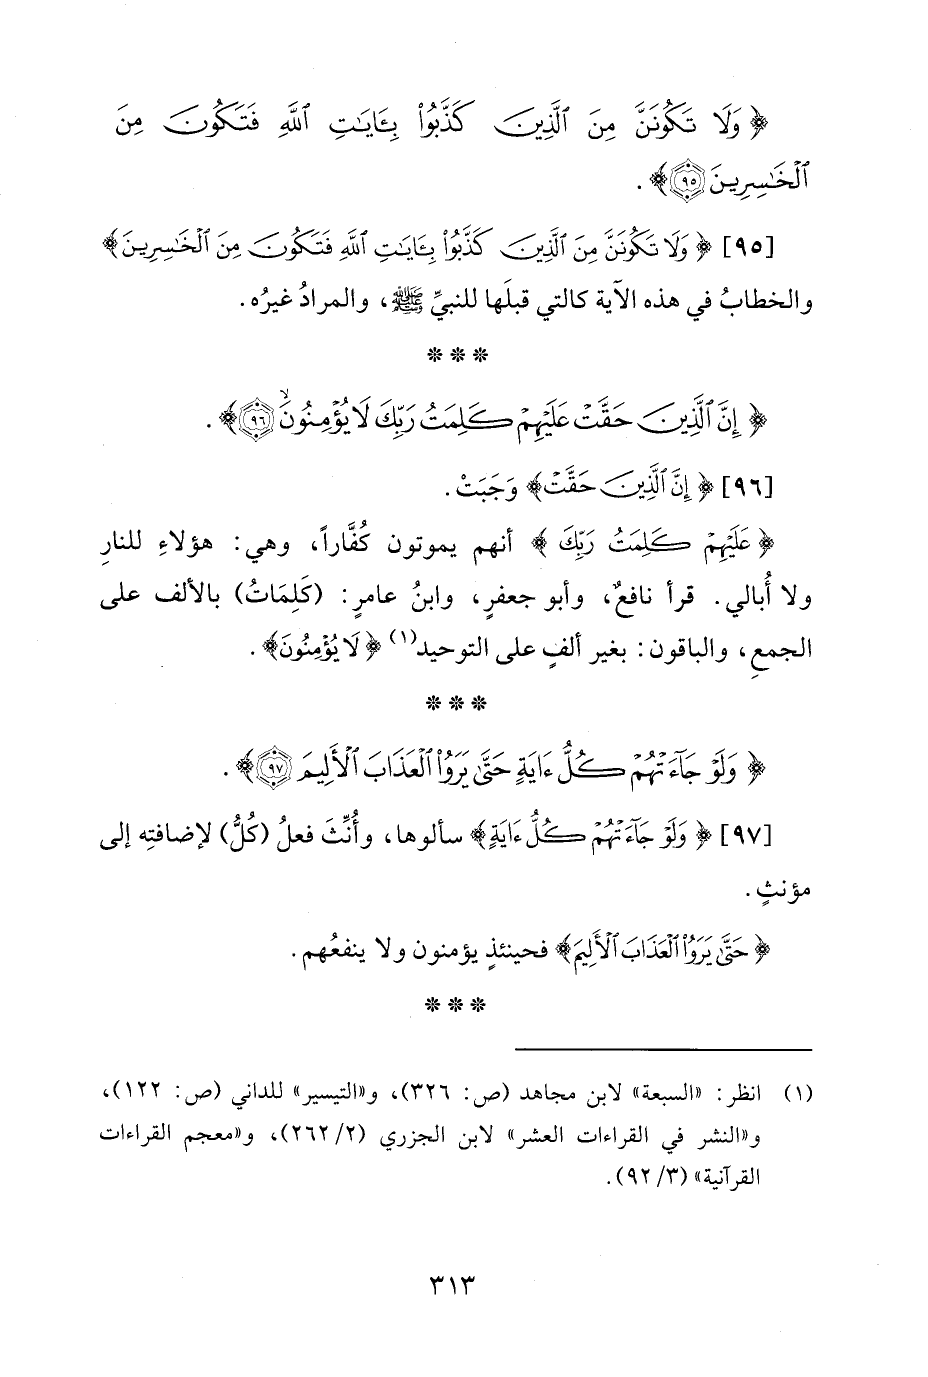 ﴿ وَلَا تَكُونَنَّ مِنَ ٱلَّذِينَ كَذَّبُوا۟ بِـَٔايَـٰتِ ٱللَّهِ فَتَكُونَ مِنَ
ٱلْخَـٰسِرِينَ ۝٩٥﴾ .
[٩٥] ﴿ وَلَا تَكُونَنَّ مِنَ ٱلَّذِينَ كَذَّبُوا۟ بِـَٔايَـٰتِ ٱللَّهِ فَتَكُونَ مِنَ ٱلْخَـٰسِرِينَ﴾
والخطابُ في هذه الآية كالتي قبلَها للنبيِّ ﷺ، والمرادُ غيرُه.
* * *
﴿ إِنَّ ٱلَّذِينَ حَقَّتْ عَلَيْهِمْ كَلِمَتُ رَبِّكَ لَا يُؤْمِنُونَۙ ۝٩٦﴾ .
[٩٦] ﴿ إِنَّ ٱلَّذِينَ حَقَّتْ﴾ وَجَبَتْ.
﴿ عَلَيْهِمْ كَلِمَتُ رَبِّكَ ﴾ أنهم يموتون كُفَّاراً، وهي: هؤلاءِ للنارِ
ولا أُبالي. قرأ نافعٌ، وأبو جعفرٍ، وابنُ عامرٍ: (كَلِمَاتُ) بالألف على
الجمعِ، والباقون: بغير ألفٍ على التوحيد(١) ﴿ لَا يُؤْمِنُونَ﴾ .
* * *
﴿ وَلَوْ جَآءَتْهُمْ كُلُّ ءَايَةٍ حَتَّىٰ يَرَوُا۟ ٱلْعَذَابَ ٱلْأَلِيمَ ۝٩٧﴾ .
[٩٧] ﴿ وَلَوْ جَآءَتْهُمْ كُلُّ ءَايَةٍ﴾ سألوها، وأُنِّثَ فعلُ (كُلُّ) لإضافتِه إلى
مؤنثٍ.
﴿ حَتَّىٰ يَرَوُا۟ ٱلْعَذَابَ ٱلْأَلِيمَ﴾ فحينئذٍ يؤمنون ولا ينفعُهم.
* * *
(١) انظر: «السبعة» لابن مجاهد (ص: ٣٢٦)، و«التيسير» للداني (ص: ١٢٢)،
و«النشر في القراءات العشر» لابن الجزري (٢/ ٢٦٢)، و«معجم القراءات
القرآنية» (٣/ ٩٢).
٣١٣